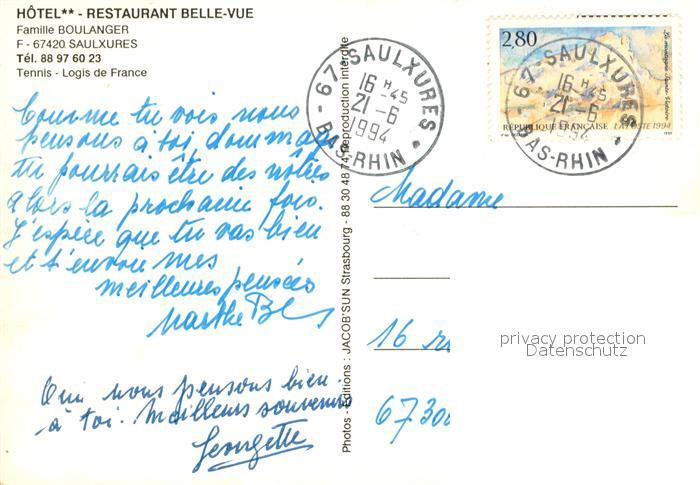 HÔTEL** - RESTAURANT BELLE-VUE
Famille BOULANGER
F - 67420 SAULXURES
Tél. 88 97 60 23
Tennis - Logis de France
Comme tu vois nous
pensons à toi, dommage
tu pourrais être des nôtres
alors la prochaine fois.
J'espère que tu vas bien
et t'envoie mes
meilleures pensées
Marthe
Oui nous pensons bien
à toi. Meilleurs souvenirs
Georgette
Photos - Editions : JACOB'SUN Strasbourg - 88 30 48 74 Reproduction interdite
67 - SAULXURES
16 H 45
21 - 6
1994
BAS-RHIN
2,80
RÉPUBLIQUE FRANÇAISE LA POSTE 1994
67 - SAULXURES
16 H 45
21 - 6
1994
BAS-RHIN
Madame
16
67300
privacy protection
Datenschutz